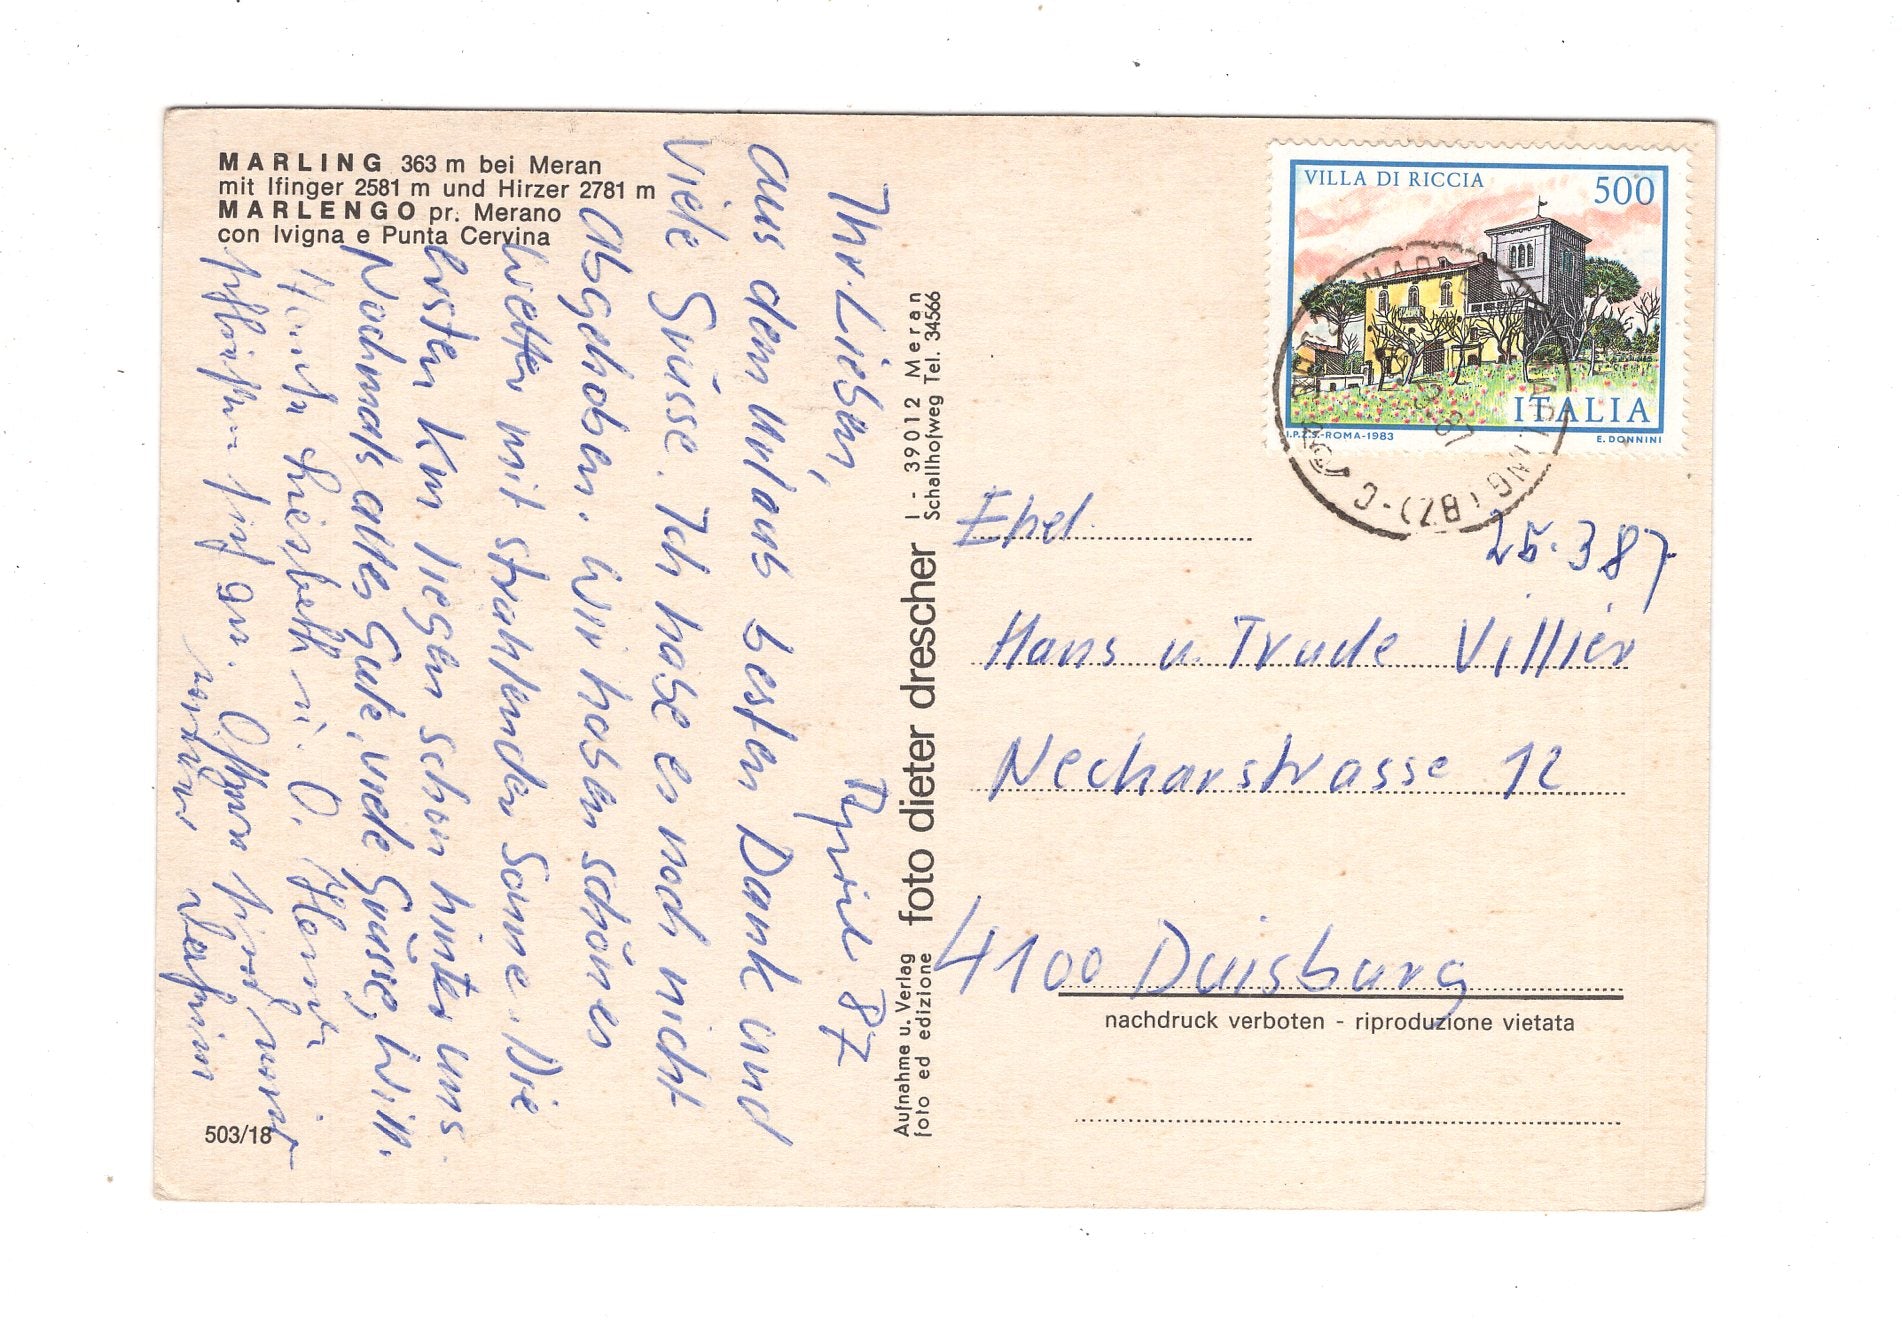 MARLING 363 m bei Meran
mit Ifinger 2581 m und Hirzer 2781 m
MARLENGO pr. Merano
con Ivigna e Punta Cervina
April 87
Ihr Lieben,
aus dem Urlaub besten Dank und
viele Grüsse. Ich habe es noch nicht
abgehoben. Wir haben schönes
Wetter mit strahlender Sonne. Die
ersten Km liegen schon hinter uns.
Nochmals alles Gute, viele Grüsse,
503/18
Aufnahme u. Verlag foto dieter drescher I - 39012 Meran
foto ed edizione Schallhofweg Tel. 34566
VILLA DI RICCIA 500
ITALIA
I.P.Z.S.-ROMA-1983 E. DONNINI
25.3 87
Ehel.
Hans u. Trude Villier
Neckarstrasse 12
4100 Duisburg
nachdruck verboten - riproduzione vietata